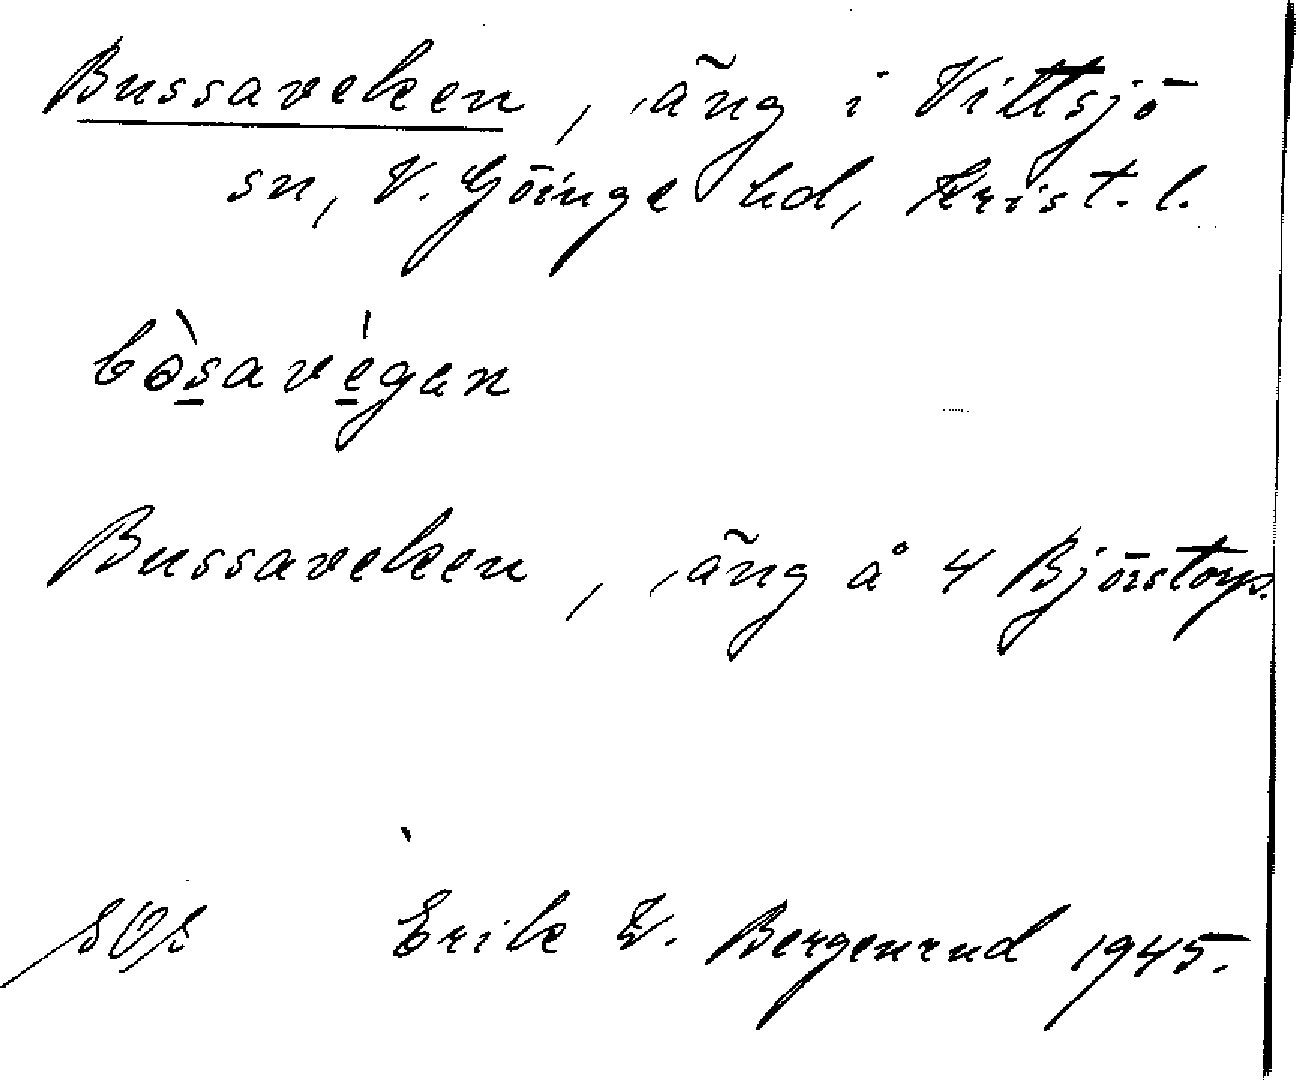 Bussaveken, äng i Vittsjö
sn, V. Göinge hd, Krist. l.
bòsavégan
Bussaveken, äng å 4 Björstorp.
SOS Erik W. Bergenrud 1945.